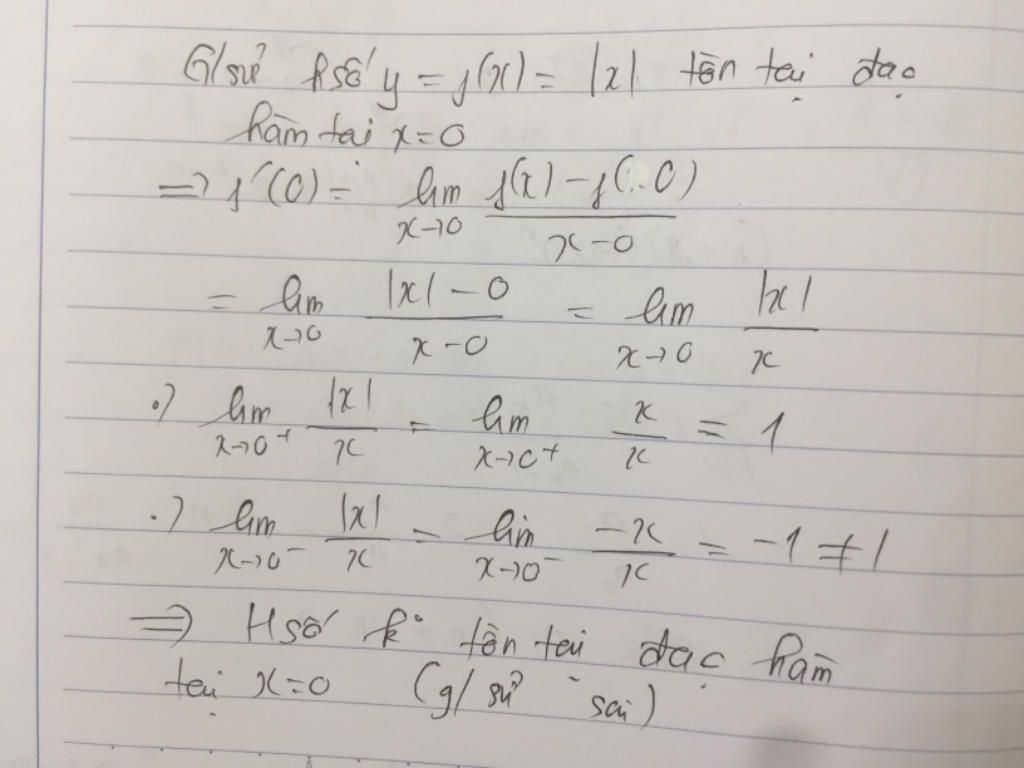 G/sử hsố y = f(x) = |x| tồn tại đạo
hàm tại x=0
=> f'(0) = lim x→0 (f(x) - f(0))/(x-0)
= lim x→0 (|x|-0)/(x-0) = lim x→0 |x|/x
•) lim x→0+ |x|/x = lim x→0+ x/x = 1
•) lim x→0- |x|/x = lim x→0- -x/x = -1 ≠ 1
=> Hsố k° tồn tại đạo hàm
tại x=0 (g/sử sai)